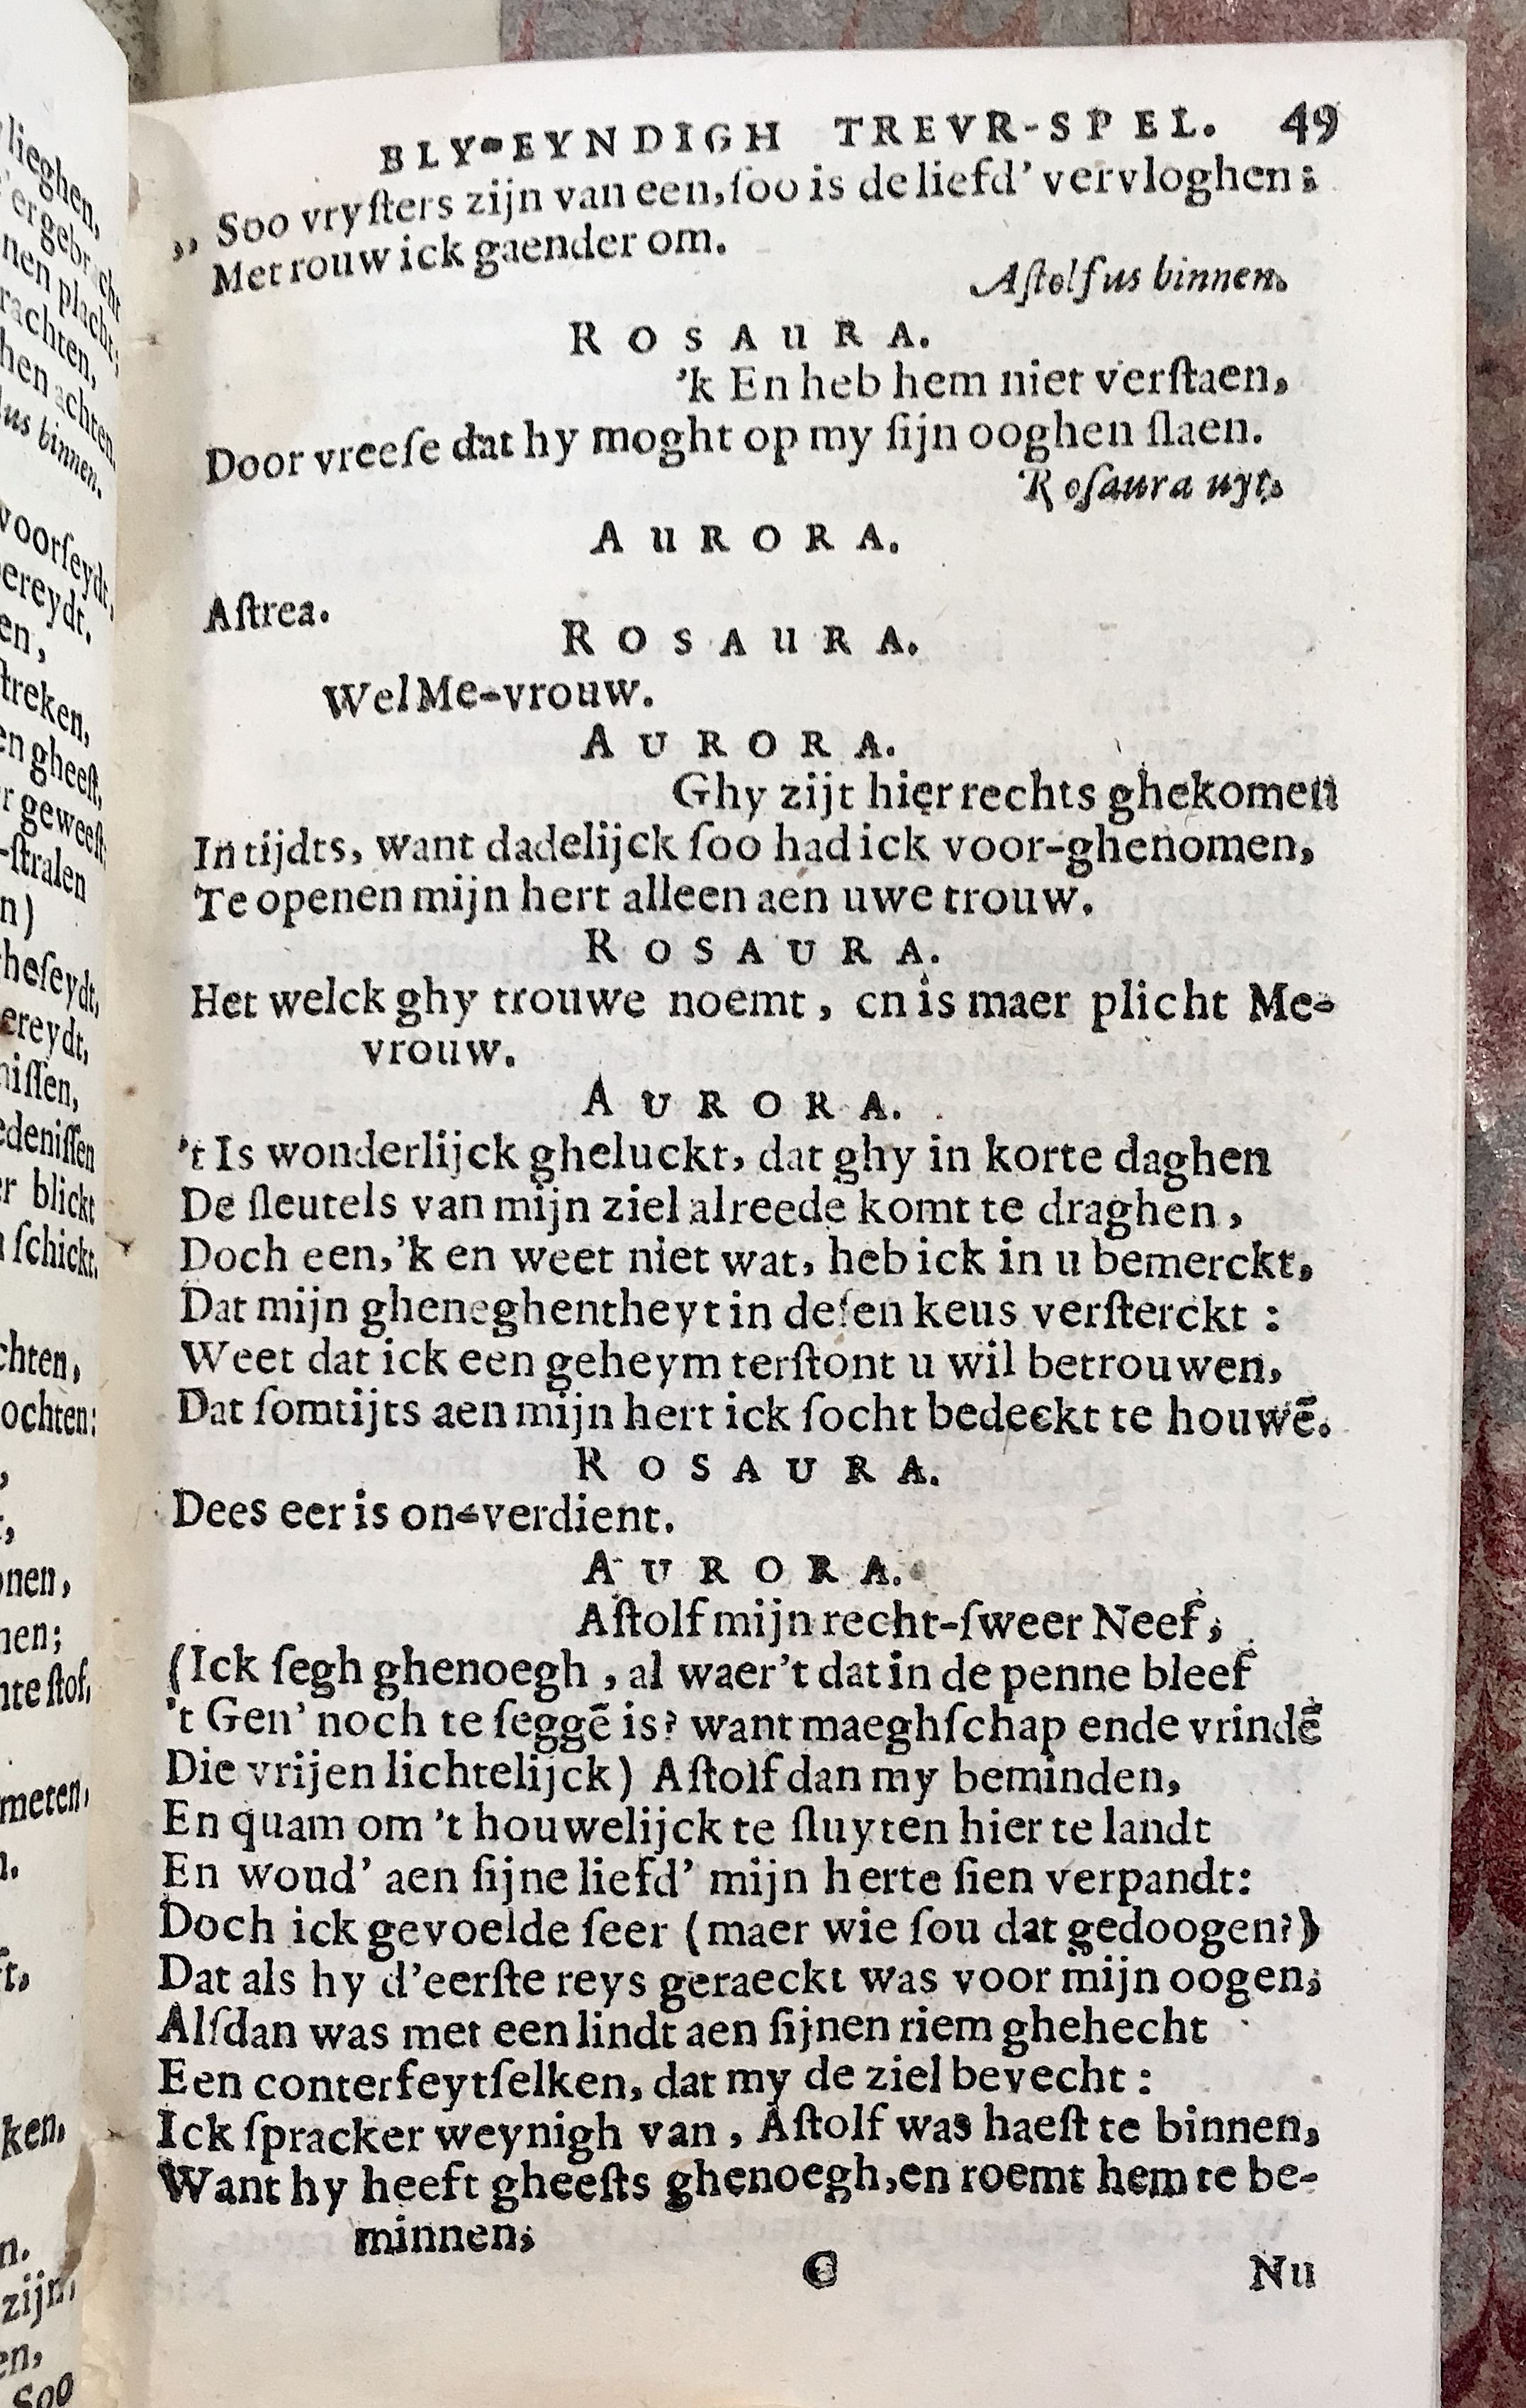 BLY-EYNDIGH TREVR-SPEL. 49
,, Soo vryſters zijn van een, ſoo is de liefd' vervloghen;
Met rouw ick gaender om.
Aſtolfus binnen.
ROSAURA.
'k En heb hem niet verſtaen,
Door vreeſe dat hy moght op my ſijn ooghen ſlaen.
Roſaura uyt.
AURORA.
Aſtrea.
ROSAURA.
Wel Me-vrouw.
AURORA.
Ghy zijt hier rechts ghekomen
In tijdts, want dadelijck ſoo had ick voor-ghenomen,
Te openen mijn hert alleen aen uwe trouw.
ROSAURA.
Het welck ghy trouwe noemt, en is maer plicht Me-
vrouw.
AURORA.
't Is wonderlijck gheluckt, dat ghy in korte daghen
De ſleutels van mijn ziel alreede komt te draghen,
Doch een, 'k en weet niet wat, heb ick in u bemerckt,
Dat mijn gheneghentheyt in deſen keus verſterckt:
Weet dat ick een geheym terſtont u wil betrouwen,
Dat ſomtijts aen mijn hert ick ſocht bedeckt te houwē.
ROSAURA.
Dees eer is on-verdient.
AURORA.
Aſtolf mijn recht-ſweer Neef,
(Ick ſegh ghenoegh, al waer't dat in de penne bleef
't Gen' noch te ſeggē is? want maeghſchap ende vrindē
Die vrijen lichtelijck) Aſtolf dan my beminden,
En quam om 't houwelijck te ſluyten hier te landt
En woud' aen ſijne liefd' mijn herte ſien verpandt:
Doch ick gevoelde ſeer (maer wie ſou dat gedoogen?)
Dat als hy d'eerſte reys geraeckt was voor mijn oogen;
Alſdan was met een lindt aen ſijnen riem ghehecht
Een conterfeytſelken, dat my de ziel bevecht:
Ick ſpracker weynigh van, Aſtolf was haeſt te binnen,
Want hy heeft gheeſts ghenoegh, en roemt hem te be-
minnen;
C Nu
lieghen,
nen placht;
rachten,
hen achten.
us binnen.
voorſeydt,
ereydt.
en,
treken,
en gheeſt,
r geweeſt;
-ſtralen
n)
heſeydt,
ereydt,
niſſen,
edeniſſen
er blickt
ſchickt.
chten,
ochten:
nen,
nen;
nte ſtof,
meten,
ken,
n.
zijn,
en,
Soo